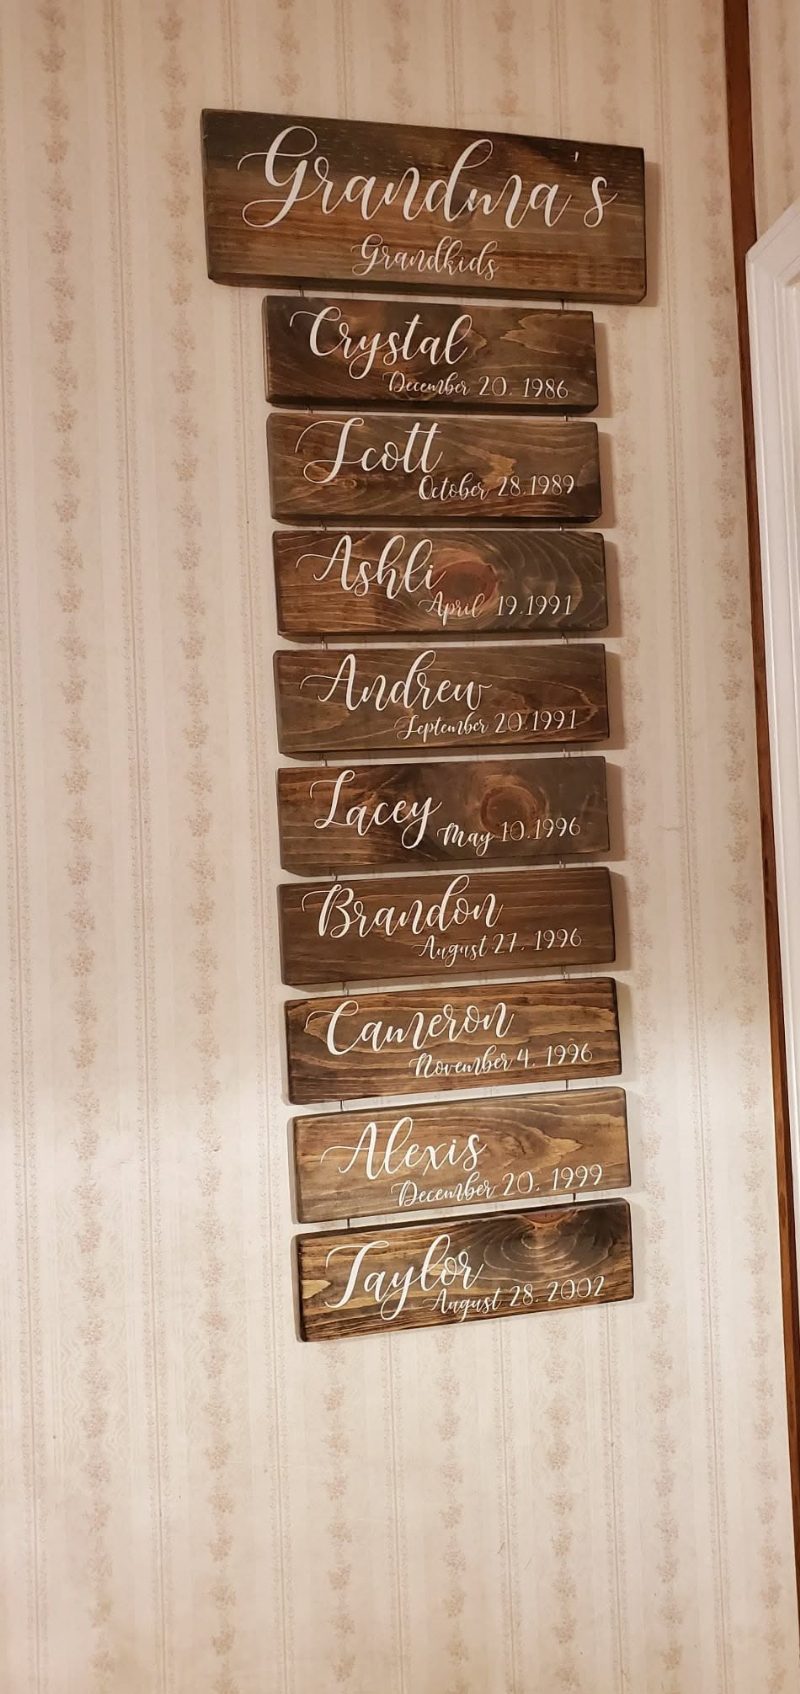 Grandma's
Grandkids
Crystal
December 20, 1986
Scott
October 28, 1989
Ashli
April 19, 1991
Andrew
September 20, 1991
Lacey
May 10, 1996
Brandon
August 27, 1996
Cameron
November 4, 1996
Alexis
December 20, 1999
Taylor
August 28, 2002